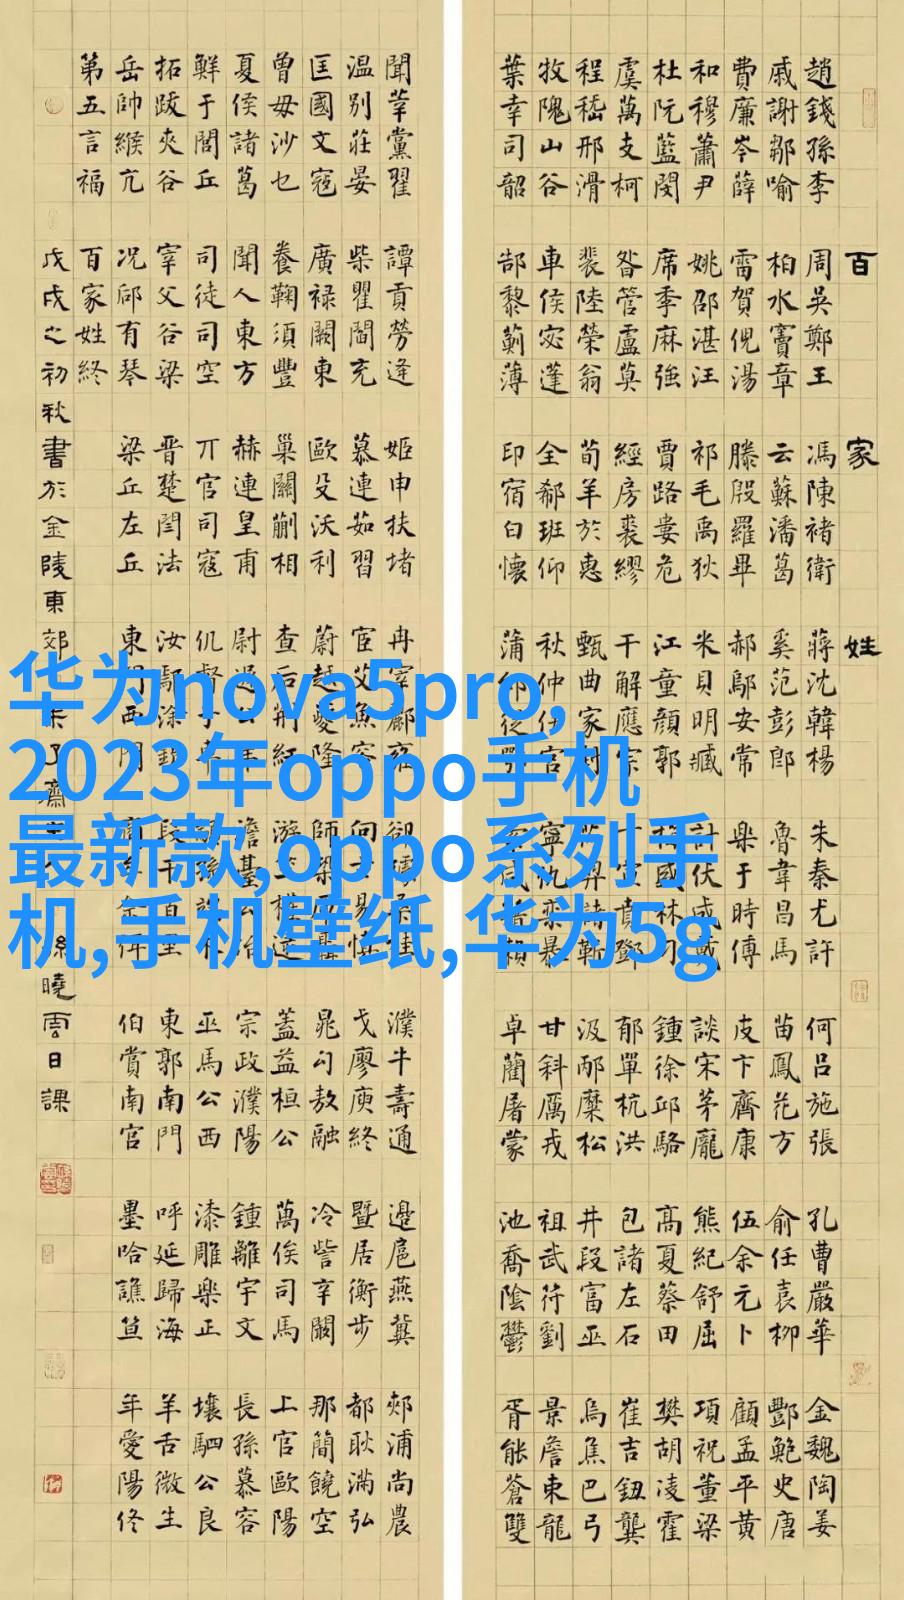 百家姓
趙錢孫李 周吳鄭王 馮陳褚衛 蔣沈韓楊 朱秦尤許 何呂施張 孔曹嚴華 金魏陶姜
戚謝鄒喻 柏水竇章 云蘇潘葛 奚范彭郎 魯韋昌馬 苗鳳花方 俞任袁柳 酆鮑史唐
費廉岑薛 雷賀倪湯 滕殷羅畢 郝鄔安常 樂于時傅 皮卞齊康 伍余元卜 顧孟平黃
和穆蕭尹 姚邵湛汪 祁毛禹狄 米貝明臧 計伏成戚 談宋茅龐 熊紀舒屈 項祝董梁
杜阮藍閔 席季麻強 賈路婁危 江童顏郭 林刁 鍾徐邱駱 高夏蔡田 樊胡凌霍
虞萬支柯 昝管盧莫 經房裘繆 干解應宗 丁宣賁鄧 郁單杭洪 包諸左石 崔吉鈕龔
程嵇邢滑 裴陸榮翁 荀羊於惠 甄曲家封 羿 靳 汲邴糜松 井段富巫 烏焦巴弓
牧隗山谷 車侯宓蓬 全郗班仰 秋仲伊宮 寧仇欒暴 甘斜厲戎 祖武符劉 景詹束龍
葉幸司韶 郜黎薊薄 印宿白懷 蒲 從鄂 咸 賴 卓藺屠蒙 池喬陰鬱 胥能蒼雙
聞莘黨翟 譚貢勞逄 姬申扶堵 冉宰酈雍 卻璩桑桂 濮牛壽通 邊扈燕冀 郟浦尚農
温別莊晏 柴瞿閻充 慕連茹習 宦艾魚容 向古易慎 戈廖庾終 暨居衡步 都耿滿弘
匡國文寇 廣祿闕東 歐殳沃利 蔚越夔隆 師鞏厙聶 晁勾敖融 冷訾辛闞 那簡饒空
曾毋沙乜 養鞠須豐 巢關蒯相 查后荊紅 游竺權逯 蓋益桓公 萬俟司馬 上官歐陽
夏侯諸葛 聞人東方 赫連皇甫 尉遲公羊 澹臺公冶 宗政濮陽 鍾離宇文 長孫慕容
鮮于閭丘 司徒司空 丌官司寇 仉督子車 顓孫 木 巫馬公西 漆雕樂正 壤駟公良
拓跋夾谷 宰父谷梁 晉楚閆法 汝鄢涂欽 段干百里 東郭南門 呼延歸海 羊舌微生
岳帥緱亢 況郈有琴 梁丘左丘 東門西門 商牟佘佴 伯賞南宮 墨哈譙笪 年愛陽佟
第五言福 百家姓終
戊戌之初秋書於金陵東郊未了齋 曉雲日課
华为nova5pro,
2023年oppo手机
最新款,oppo系列手
机,手机壁纸,华为5g